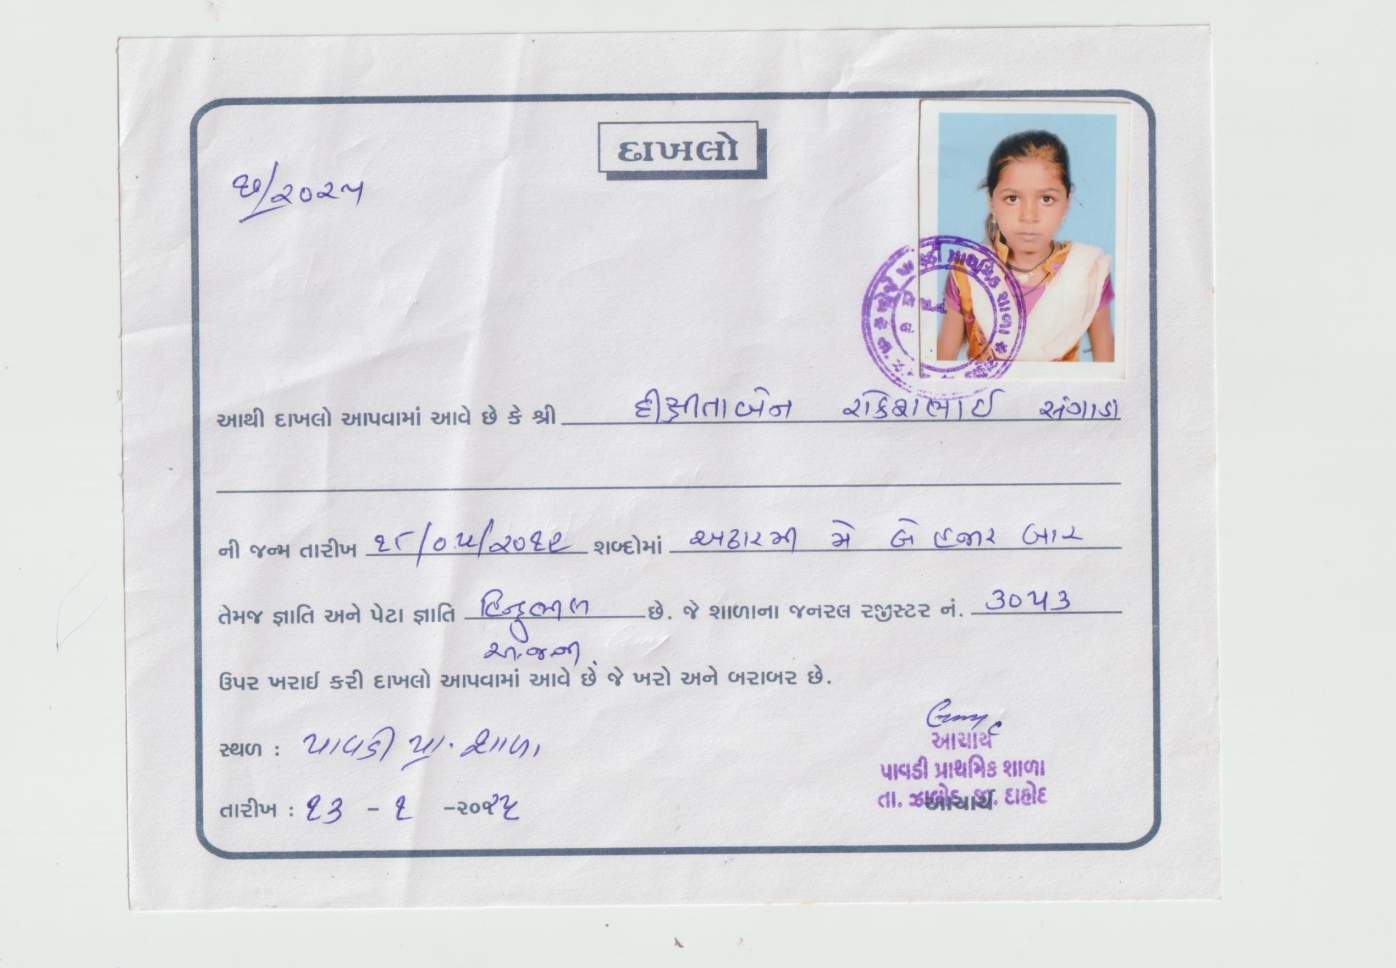 દાખલો
૨૦૨૫
આથી દાખલો આપવામાં આવે છે કે શ્રી દીક્ષીતાબેન રાકેશભાઈ સંગાડા
ની જન્મ તારીખ ૧૮/૦૫/૨૦૧૨ શબ્દોમાં અઢારમી મે બે હજાર બાર
તેમજ જ્ઞાતિ અને પેટા જ્ઞાતિ હિન્દુભીલ છે. જે શાળાના જનરલ રજીસ્ટર નં. ૩૦૫૩
અ.જ.જા.
ઉપર ખરાઈ કરી દાખલો આપવામાં આવે છે જે ખરો અને બરાબર છે.
સ્થળ : પાવડી પ્રા. શાળા
તારીખ : ૧૩ - ૧ -૨૦૨૫
આચાર્ય
પાવડી પ્રાથમિક શાળા
તા. ઝાલોદ, જી. દાહોદ
આચાર્ય